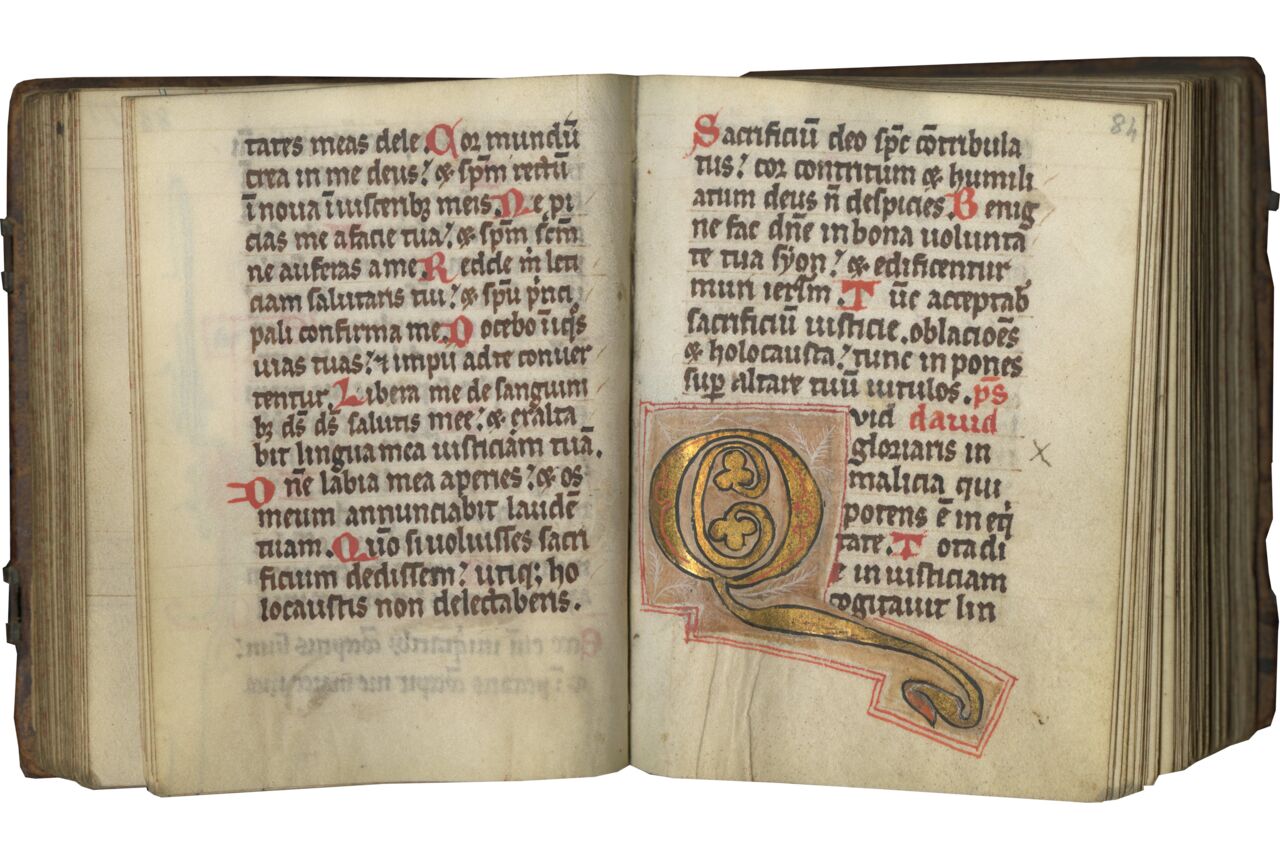 tates meas dele. Cor mundū
crea in me deus: & spm̄ rectū
īnoua ī uisceribꝫ meis. Ne pi
cias me a facie tua: & spm̄ scm̄
ne auferas a me. Redde m̄ leti
ciam salutaris tui: & spū prīnci
pali confirma me. Docebo īiqͦs
uias tuas: & impii ad te conuer
tentur. Libera me de sanguini
bꝫ ds̄ ds̄ salutis mee: & exalta
bit lingua mea iusticiam tuā.
Dnē labia mea aperies: & os
meum annunciabit laudē
tuam. Quō si uoluisses sacri
ficium dedissem: utiqꝫ ho
locaustis non delectaberis.
84
Sacrificiū deo spc̄ cōtribula
tus: cor contritum & humili
atum deus n̄ despicies. Benig
ne fac dnē in bona uolunta
te tua syon: & edificentur
muri ierslm̄. Tūc acceptab
sacrificiū iusticie. oblacioēs
& holocausta: tunc inpones
suꝑ altare tuū uitulos. ps̄
Qvid dauid
gloriaris in
malicia qui
potens ē in eqi
tate. Tota di
e iniusticiam
cogitauit lin
x